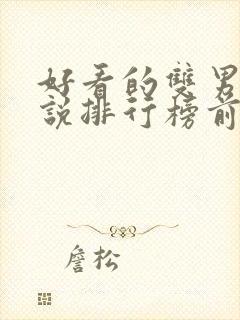 好看的雙男
說排行榜前
詹松